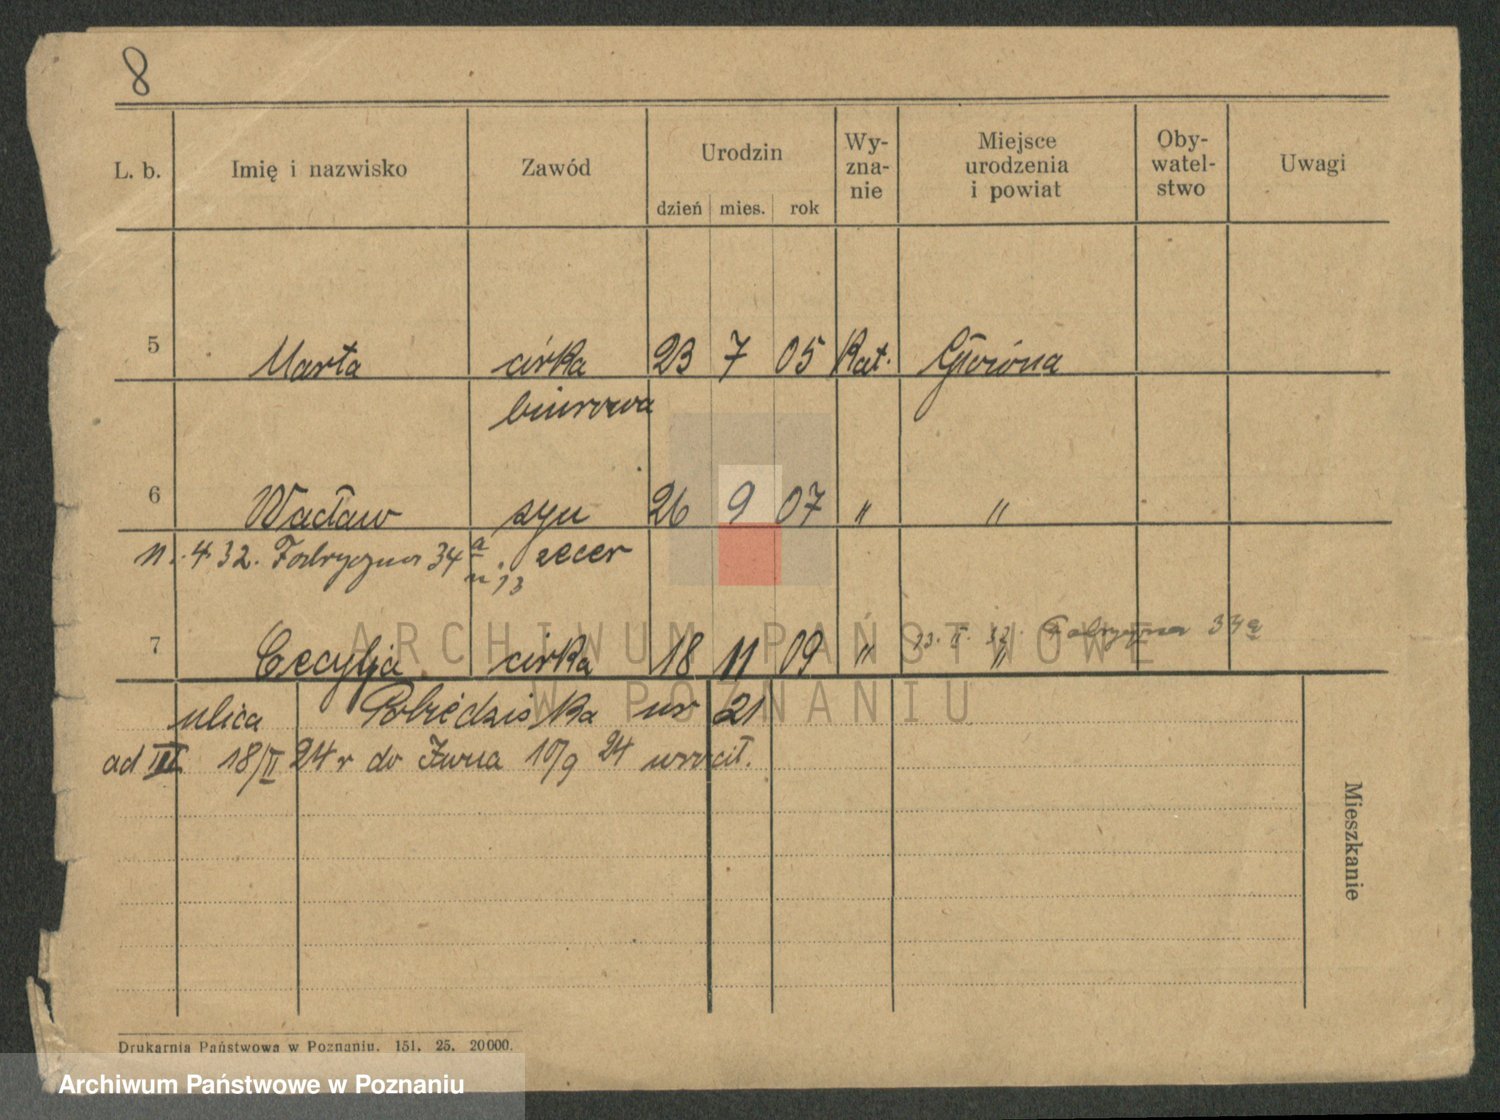 8
L. b. Imię i nazwisko Zawód Urodzin dzień mies. rok Wy-zna-nie Miejsce urodzenia i powiat Oby-watel-stwo Uwagi
5 Marta córka 23 7 05 Kat. Główna
biurowa
6 Wacław syn 26 9 07 " "
11. 4 32. Fabryczna 34 a zecer
m. 13
13. II. 32. Fabryczna 34a
7 Cecylja córka 18 11 09 " "
ARCHIWUM PAŃSTWOWE
W POZNANIU
ulica Pobiedziska nr 21
ad III 18/II 24 r do Żnina 10/9 24 wrócił.
Mieszkanie
Drukarnia Państwowa w Poznaniu. 151. 25. 20000.
Archiwum Państwowe w Poznaniu